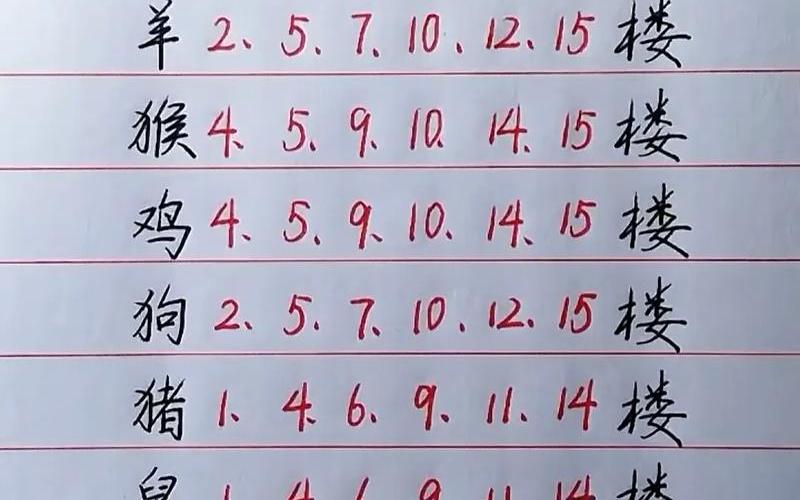 羊 2、5、7、10、12、15 楼
猴 4、5、9、10、14、15 楼
鸡 4、5、9、10、14、15 楼
狗 2、5、7、10、12、15 楼
猪 1、4、6、9、11、14 楼
鼠 1、4、6、9、11、14 楼